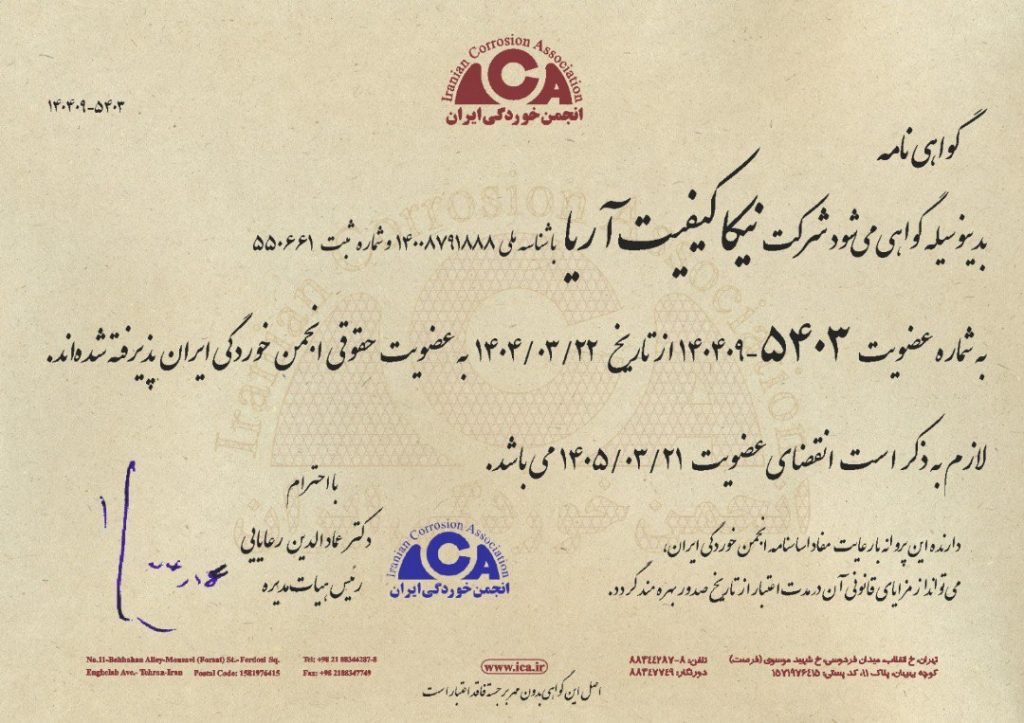 Iranian Corrosion Association
ICA
انجمن خوردگی ایران
۱۴۰۴۰۹-۵۴۰۳
گواهی نامه
بدینوسیله گواهی می‌شود شرکت نیکا کیفیت آریا با شناسه ملی ۱۴۰۰۸۷۹۱۸۸۸ و شماره ثبت ۵۵۰۶۶۱
به شماره عضویت ۵۴۰۳-۱۴۰۴۰۹ از تاریخ ۱۴۰۴/۰۳/۲۲ به عضویت حقوقی انجمن خوردگی ایران پذیرفته شده‌اند.
لازم به ذکر است انقضای عضویت ۱۴۰۵/۰۳/۲۱ می باشد.
با احترام
دکتر عماد الدین رعایایی
رئیس هیات مدیره
Iranian Corrosion Association
ICA
انجمن خوردگی ایران
دارنده این پروانه با رعایت مفاد اساسنامه انجمن خوردگی ایران،
می تواند از مزایای قانونی آن در مدت اعتبار از تاریخ صدور بهره مند گردد.
No.11-Behbahan Alley-Mousavi (Forsat) St.- Ferdosi Sq.
Enghelab Ave.- Tehran-Iran Postal Code: 1581976415
Tel: +98 21 88344287-8
Fax: +98 2188347749
www.ica.ir
تلفن: ۸-۸۸۳۴۴۲۸۷
دورنگار: ۸۸۳۴۷۷۴۹
تهران، خ انقلاب، میدان فردوسی، خ شهید موسوی (فرصت)
کوچه بهبهان، پلاک ۱۱، کد پستی: ۱۵۷۱۹۷۶۴۱۵
اصل این گواهی بدون مهر برجسته فاقد اعتبار است